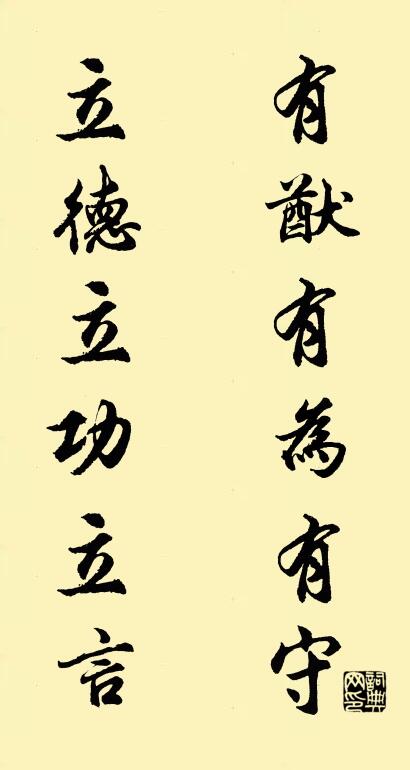 有猷有為有守
立德立功立言
詞典網印